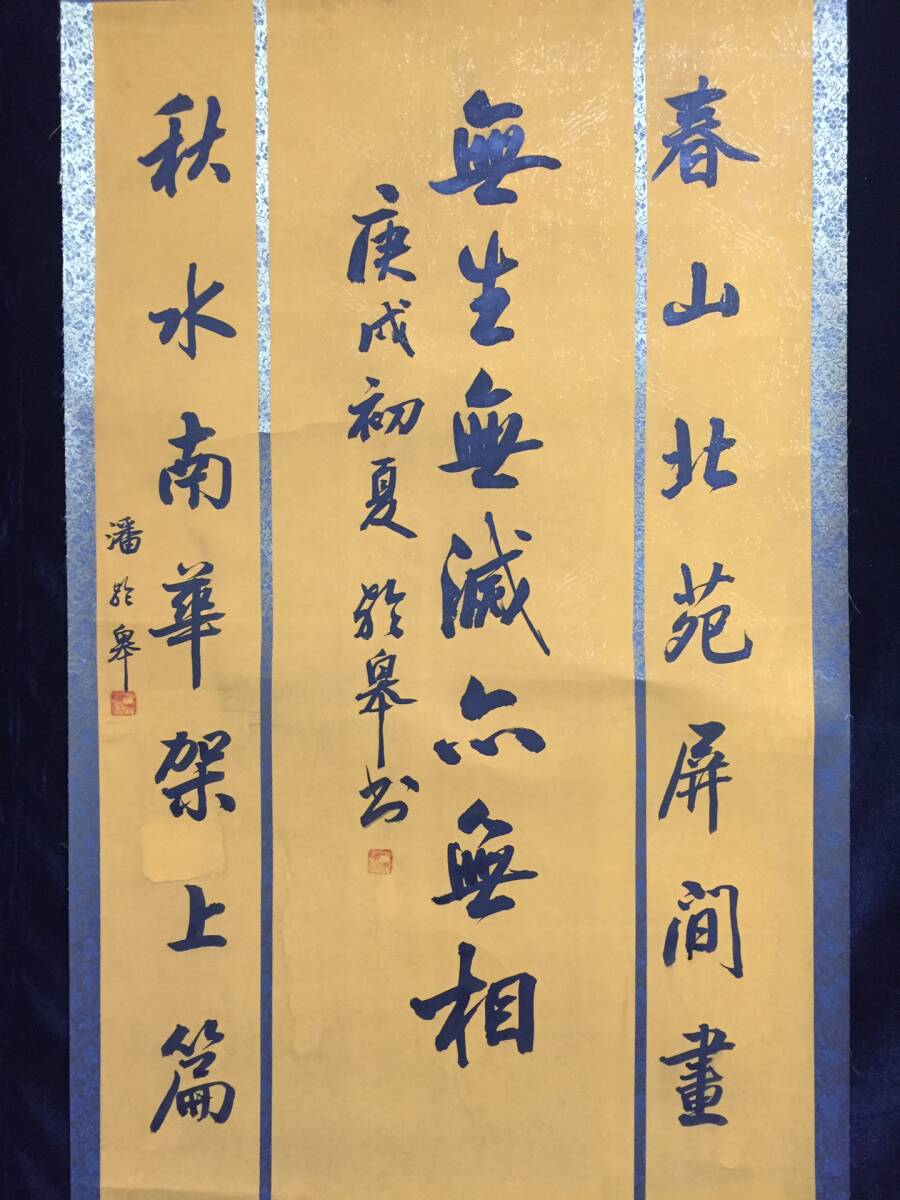 春山北苑屏間畫
無生無滅亦無相
庚戌初夏 龄皋书
秋水南華架上篇
潘龄皋